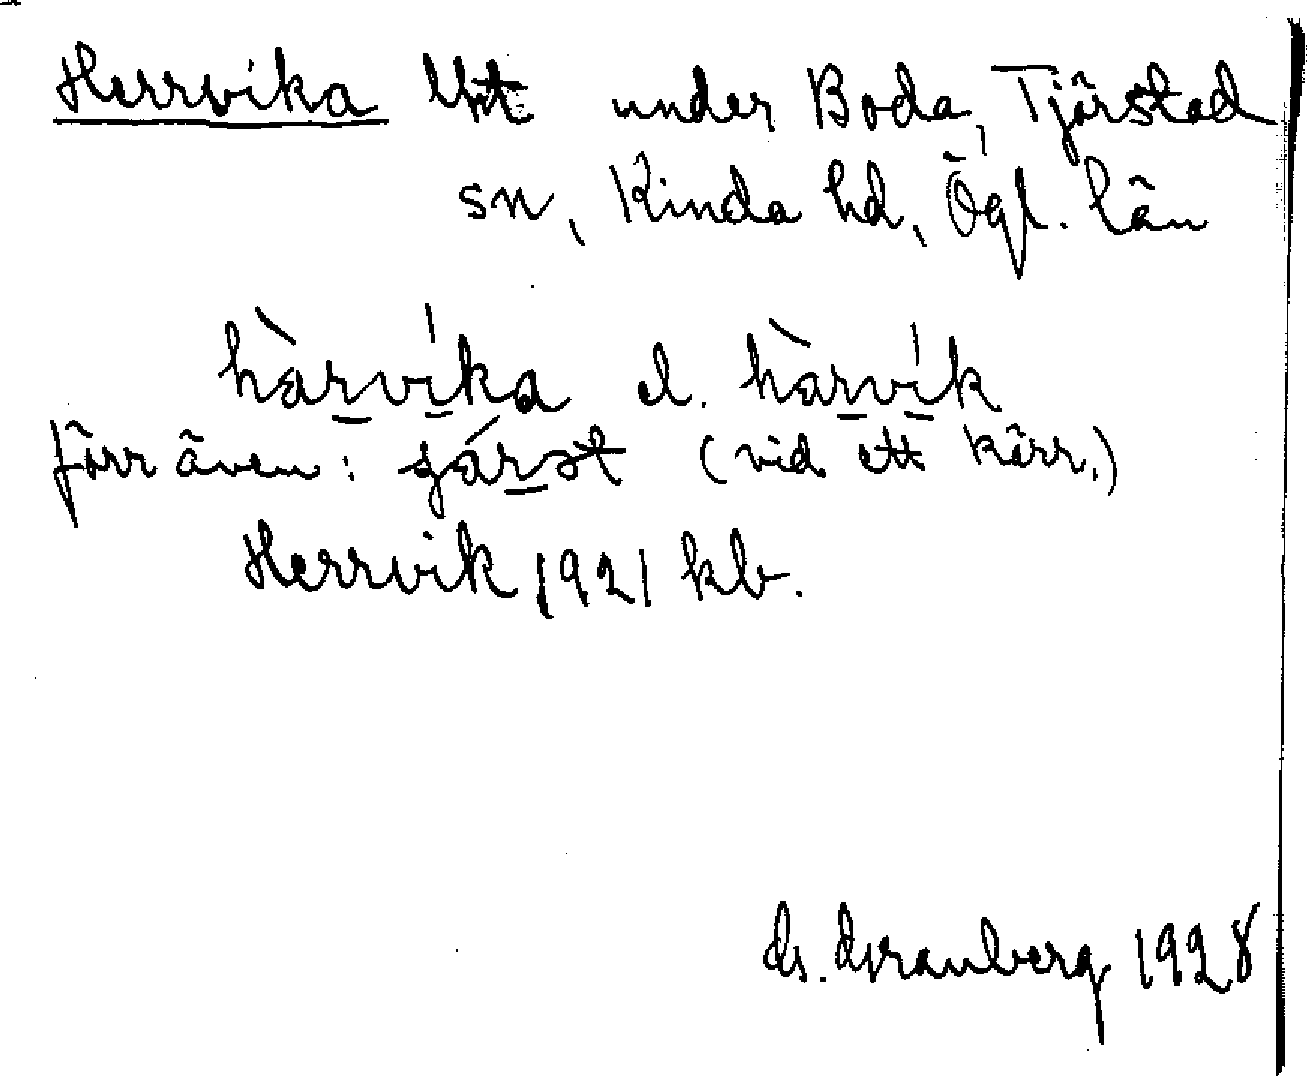 Herrvika under Boda, Tjärstad
sn, Kinda hd, Ögl. län
hàrvíka el. hàrvík
förr även: gárst (vid ett kärr.)
Herrvik 1921 kb.
Granberg 1928